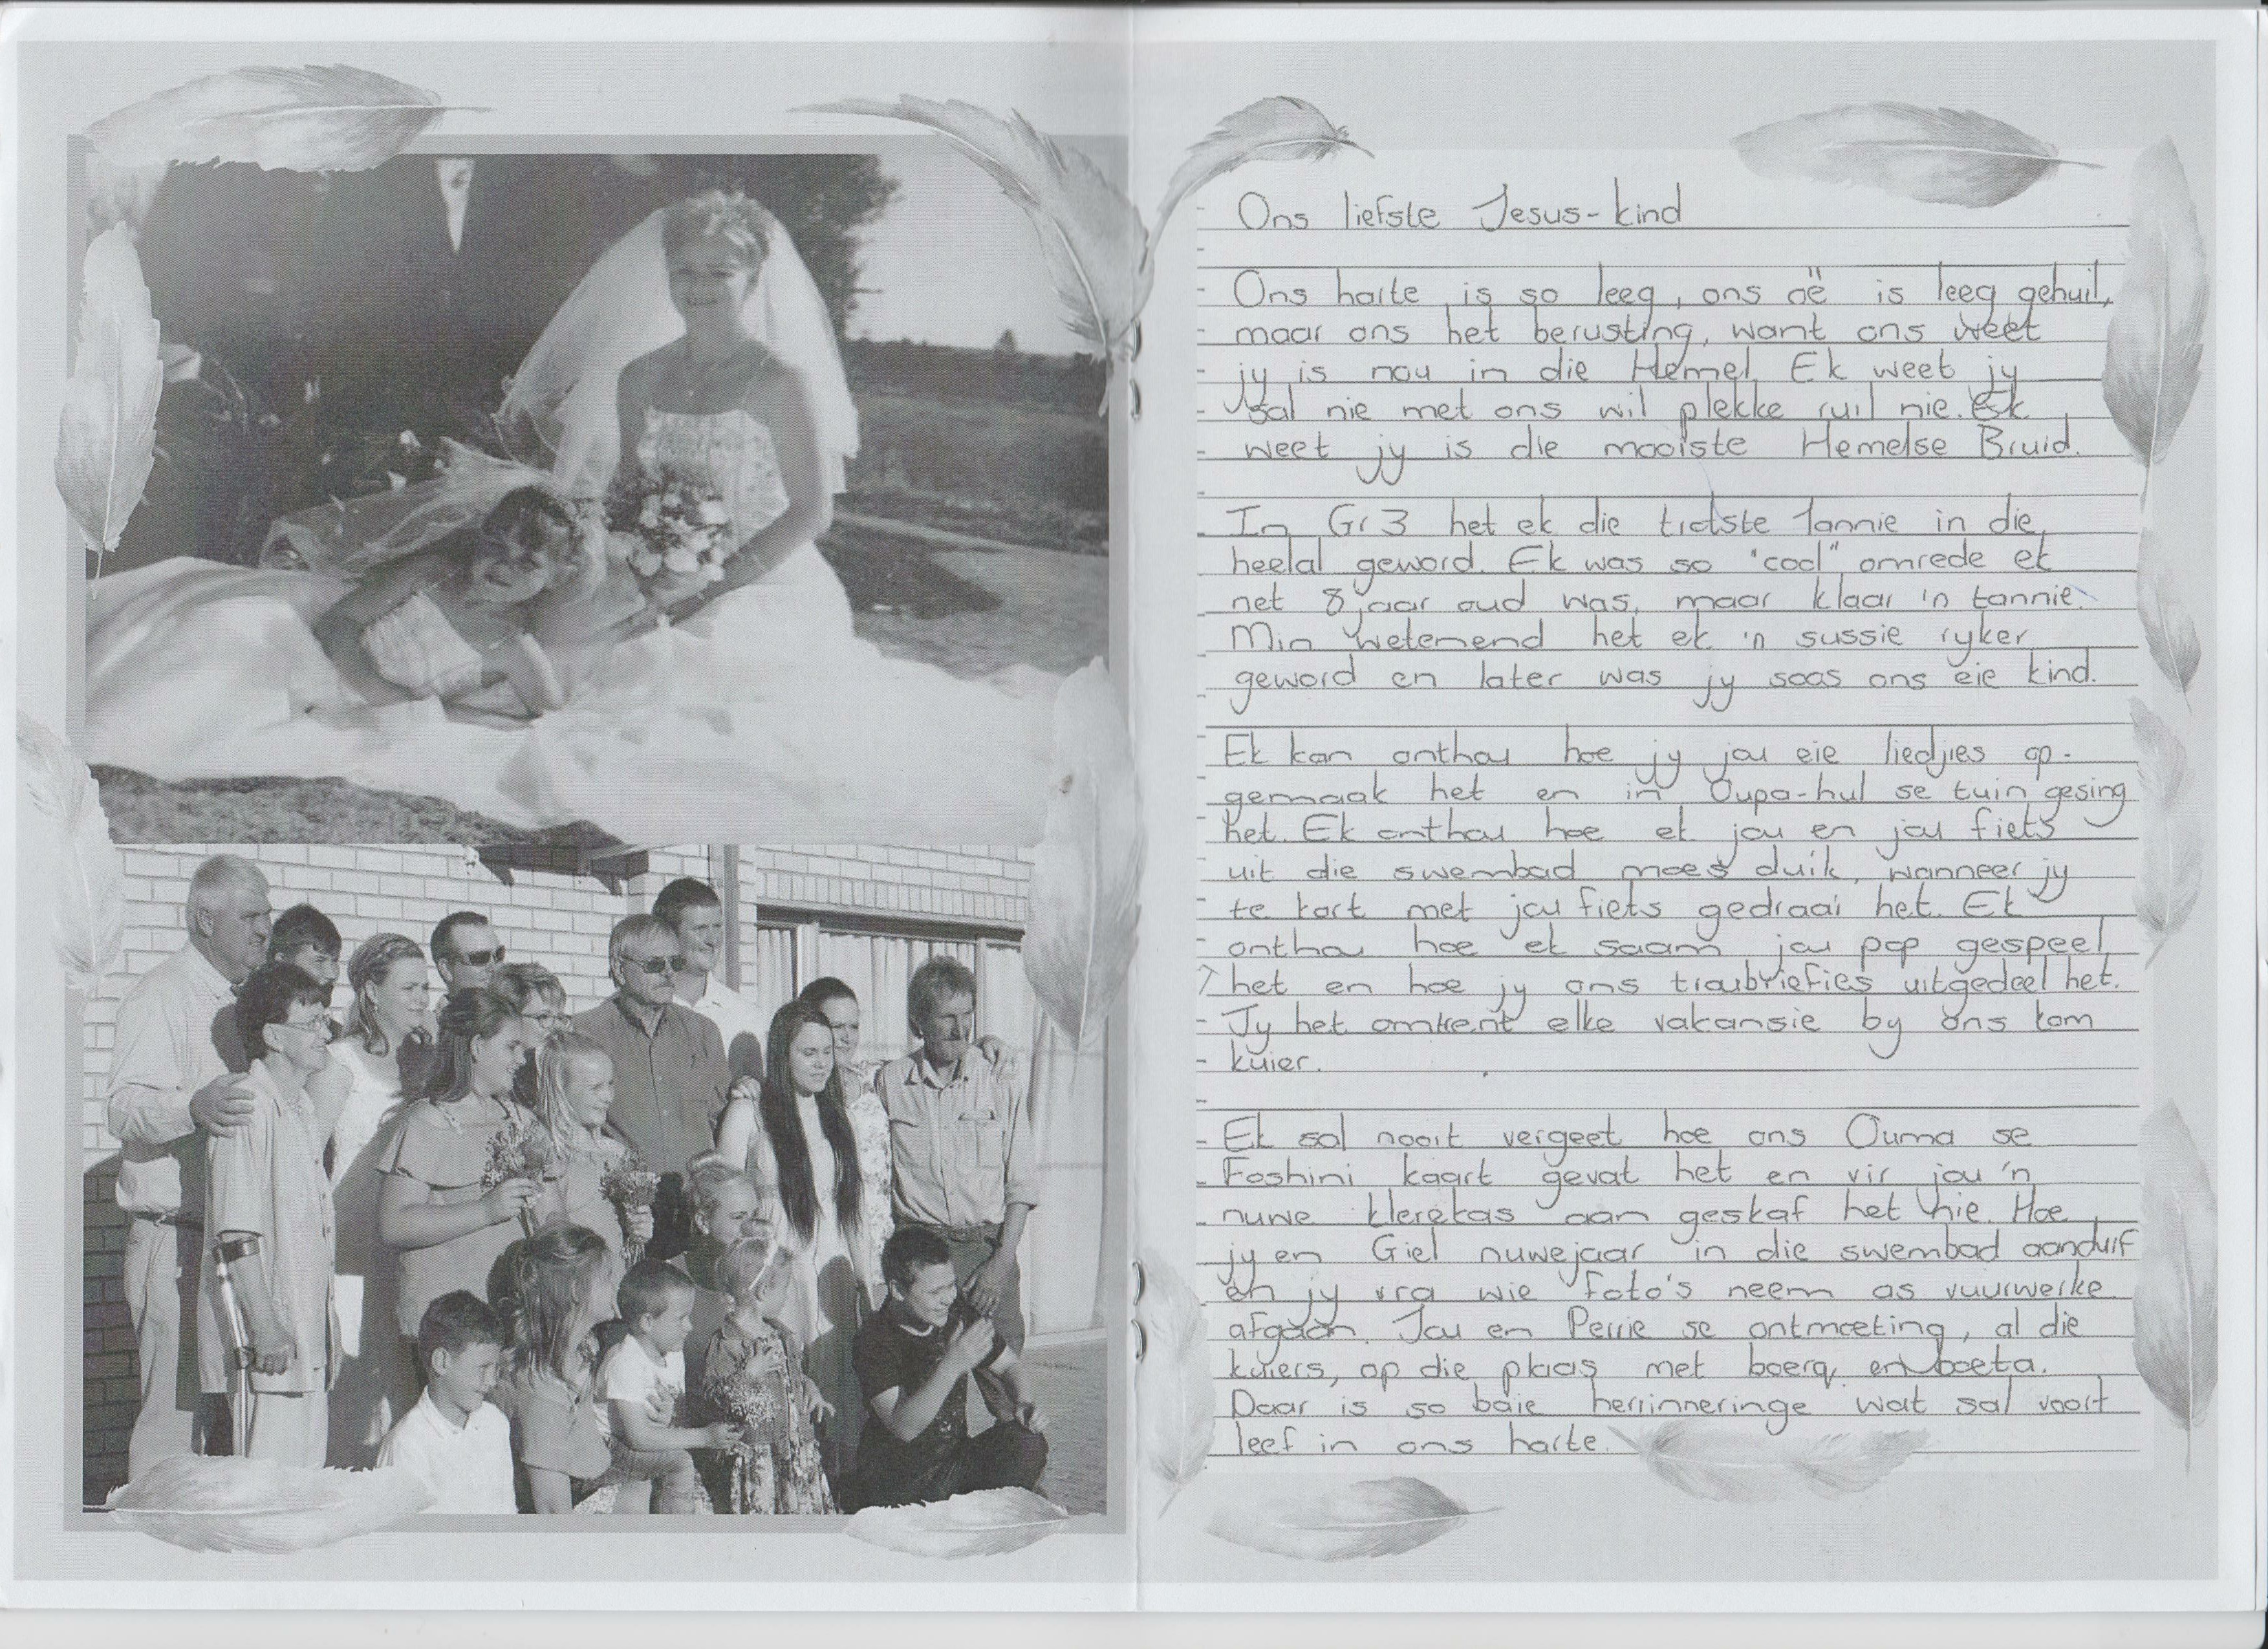 Ons liefste Jesus-kind
Ons harte is so leeg, ons oë is leeg gehuil,
maar ons het berusting, want ons weet
jy is nou in die Hemel. Ek weet jy
sal nie met ons wil plekke ruil nie. Ek
weet jy is die mooiste Hemelse Bruid.
In Gr 3 het ek die trotste Tannie in die
heelal geword. Ek was so "cool" omrede ek
net 8 jaar oud was, maar klaar 'n tannie.
Min wetemend het ek 'n sussie ryker
geword en later was jy soos ons eie kind.
Ek kan onthou hoe jy jou eie liedjies op-
gemaak het en in Oupa-hul se tuin gesing
het. Ek onthou hoe ek jou en jou fiets
uit die swembad moes duik, wanneer jy
te kort met jou fiets gedraai het. Ek
onthou hoe ek saam jou pop gespeel
het en hoe jy ons troubriefies uitgedeel het.
Jy het omtrent elke vakansie by ons kom
kuier.
Ek sal nooit vergeet hoe ons Ouma se
Foshini kaart gevat het en vir jou 'n
nuwe klerekas aan geskaf het nie. Hoe
jy en Giel nuwejaar in die swembad aanduif
en jy vra wie foto's neem as vuurwerke
afgaan. Jou en Perrie se ontmoeting, al die
kuiers, op die plaas met boera en boeta.
Daar is so baie herrinneringe wat sal voort
leef in ons harte.